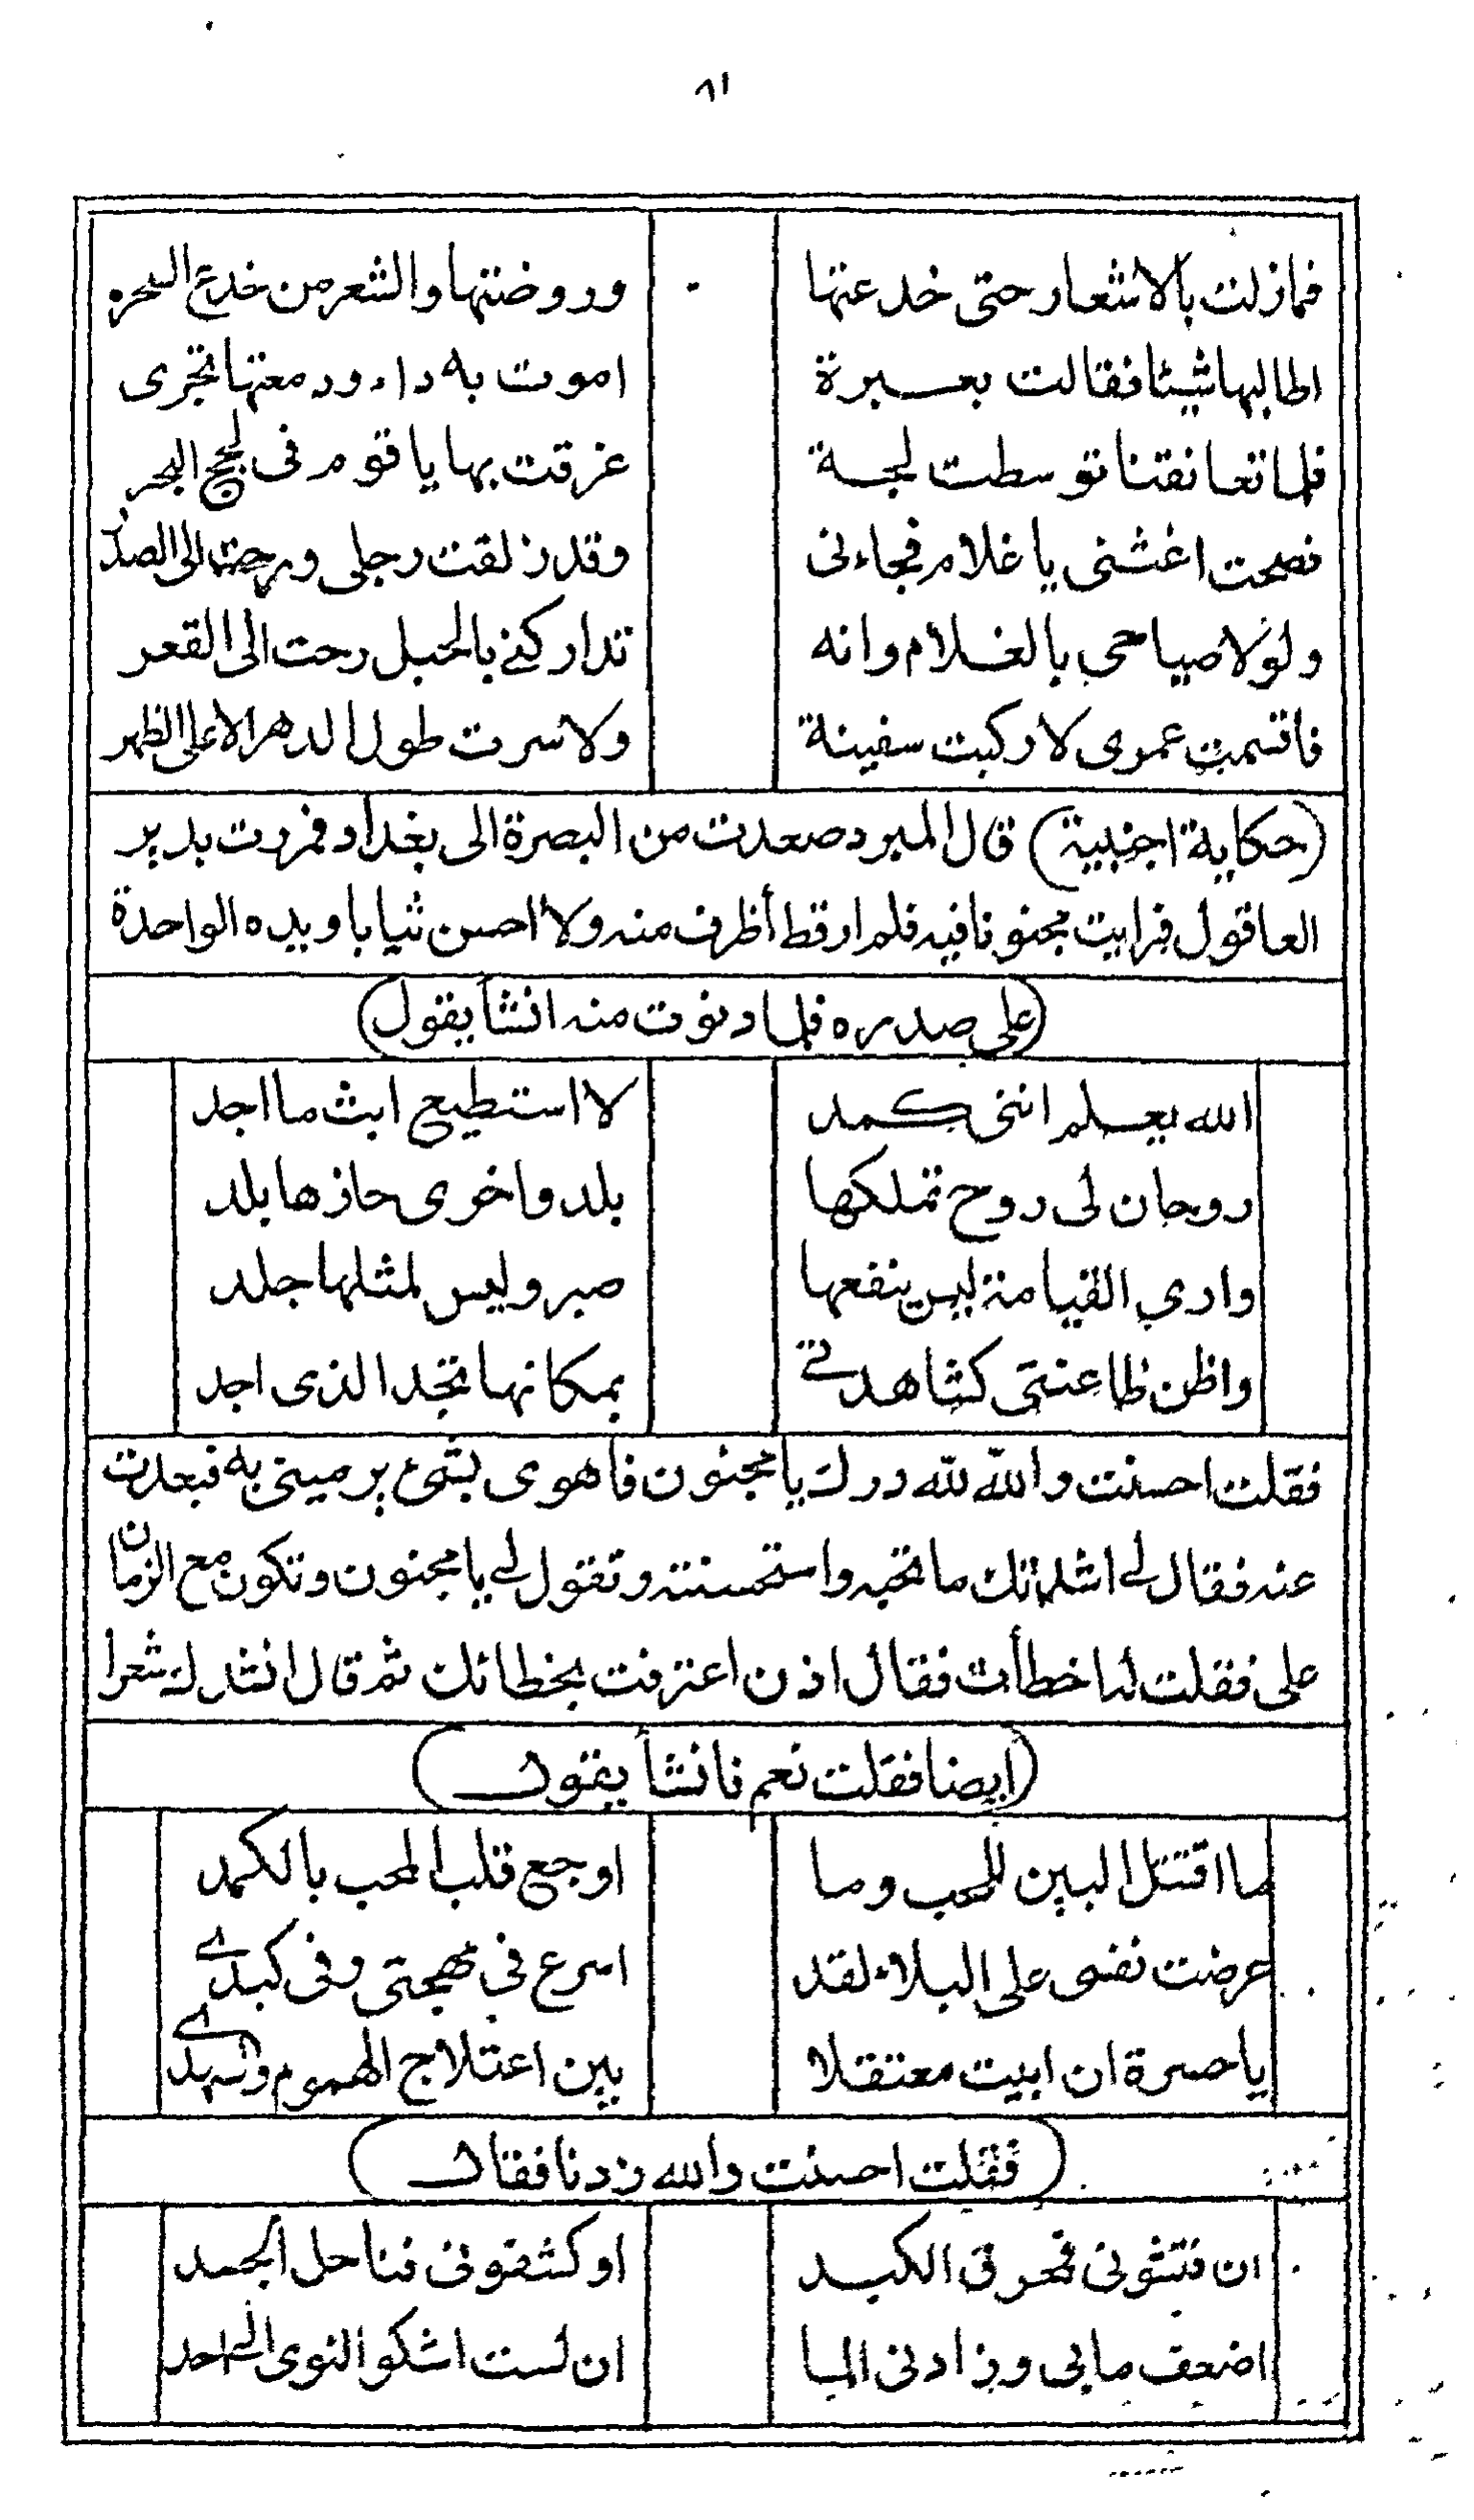 ٨١
فمازلت بالاشعار حتى خدعتها وروضتها والشعر من خدع السحره
اطالبها شيئا فقالت بعسبرة اموت به داء ودمعتها تجرى
فلما تعانقنا توسطت لجسة غرقت بها يا قوم فى لجج البحر
فصحت اغثنى يا غلام فجاءنى وقد زلقت رجلى ورحت الى الصدر
ولولا صياحى بالغلام وانه تداركنى بالحبل رحت الى القعر
فاقسمت عمرى لا ركبت سفينة ولا سرت طول الدهر الا على الظهر
(حكاية اجنبية) قال المبرد صعدت من البصرة الى بغداد فمررت بدير
العاقول فرايت مجنونا فيه فلم ار قط أظرف منه ولا احسن ثيابا ويده الواحدة
(على صدره فلما دنوت منه انشأ يقول)
الله يعلم اننى كمد لا استطيع ابث ما اجد
روحان لى روح تملكها بلد واخرى حازها بلد
وارى القيامة ليس ينفعها صبر وليس لمثلها جلد
واظن ظاعنتى كشاهدتى بمكانها تجد الذى اجد
فقلت احسنت والله لله درك يا مجنون فاهوى بشىء يرمينى به فبعدت
عنه فقال لى انشدتك ما تحبه واستحسنته وتقول لى يا مجنون وتكون مع الزمان
على فقلت له اخطأت فقال اذن اعترفت بخطائك ثم قال انشدك شعرا
(ايضا فقلت نعم فانشأ يقول)
ما اقتل البين للمحب وما اوجع قلب المحب بالكمد
عرضت نفسى على البلاء لقد اسرع فى مهجتى وفى كبدى
يا حسرة ان ابيت معتقلا بين اعتلاج الهموم والسهد
(فقلت احسنت والله زدنا فقال)
ان فتشونى فمحرق الكبد او كشفونى فناحل الجسد
اضعف مابى وزادنى الما ان لست اشكو النوى الى احد